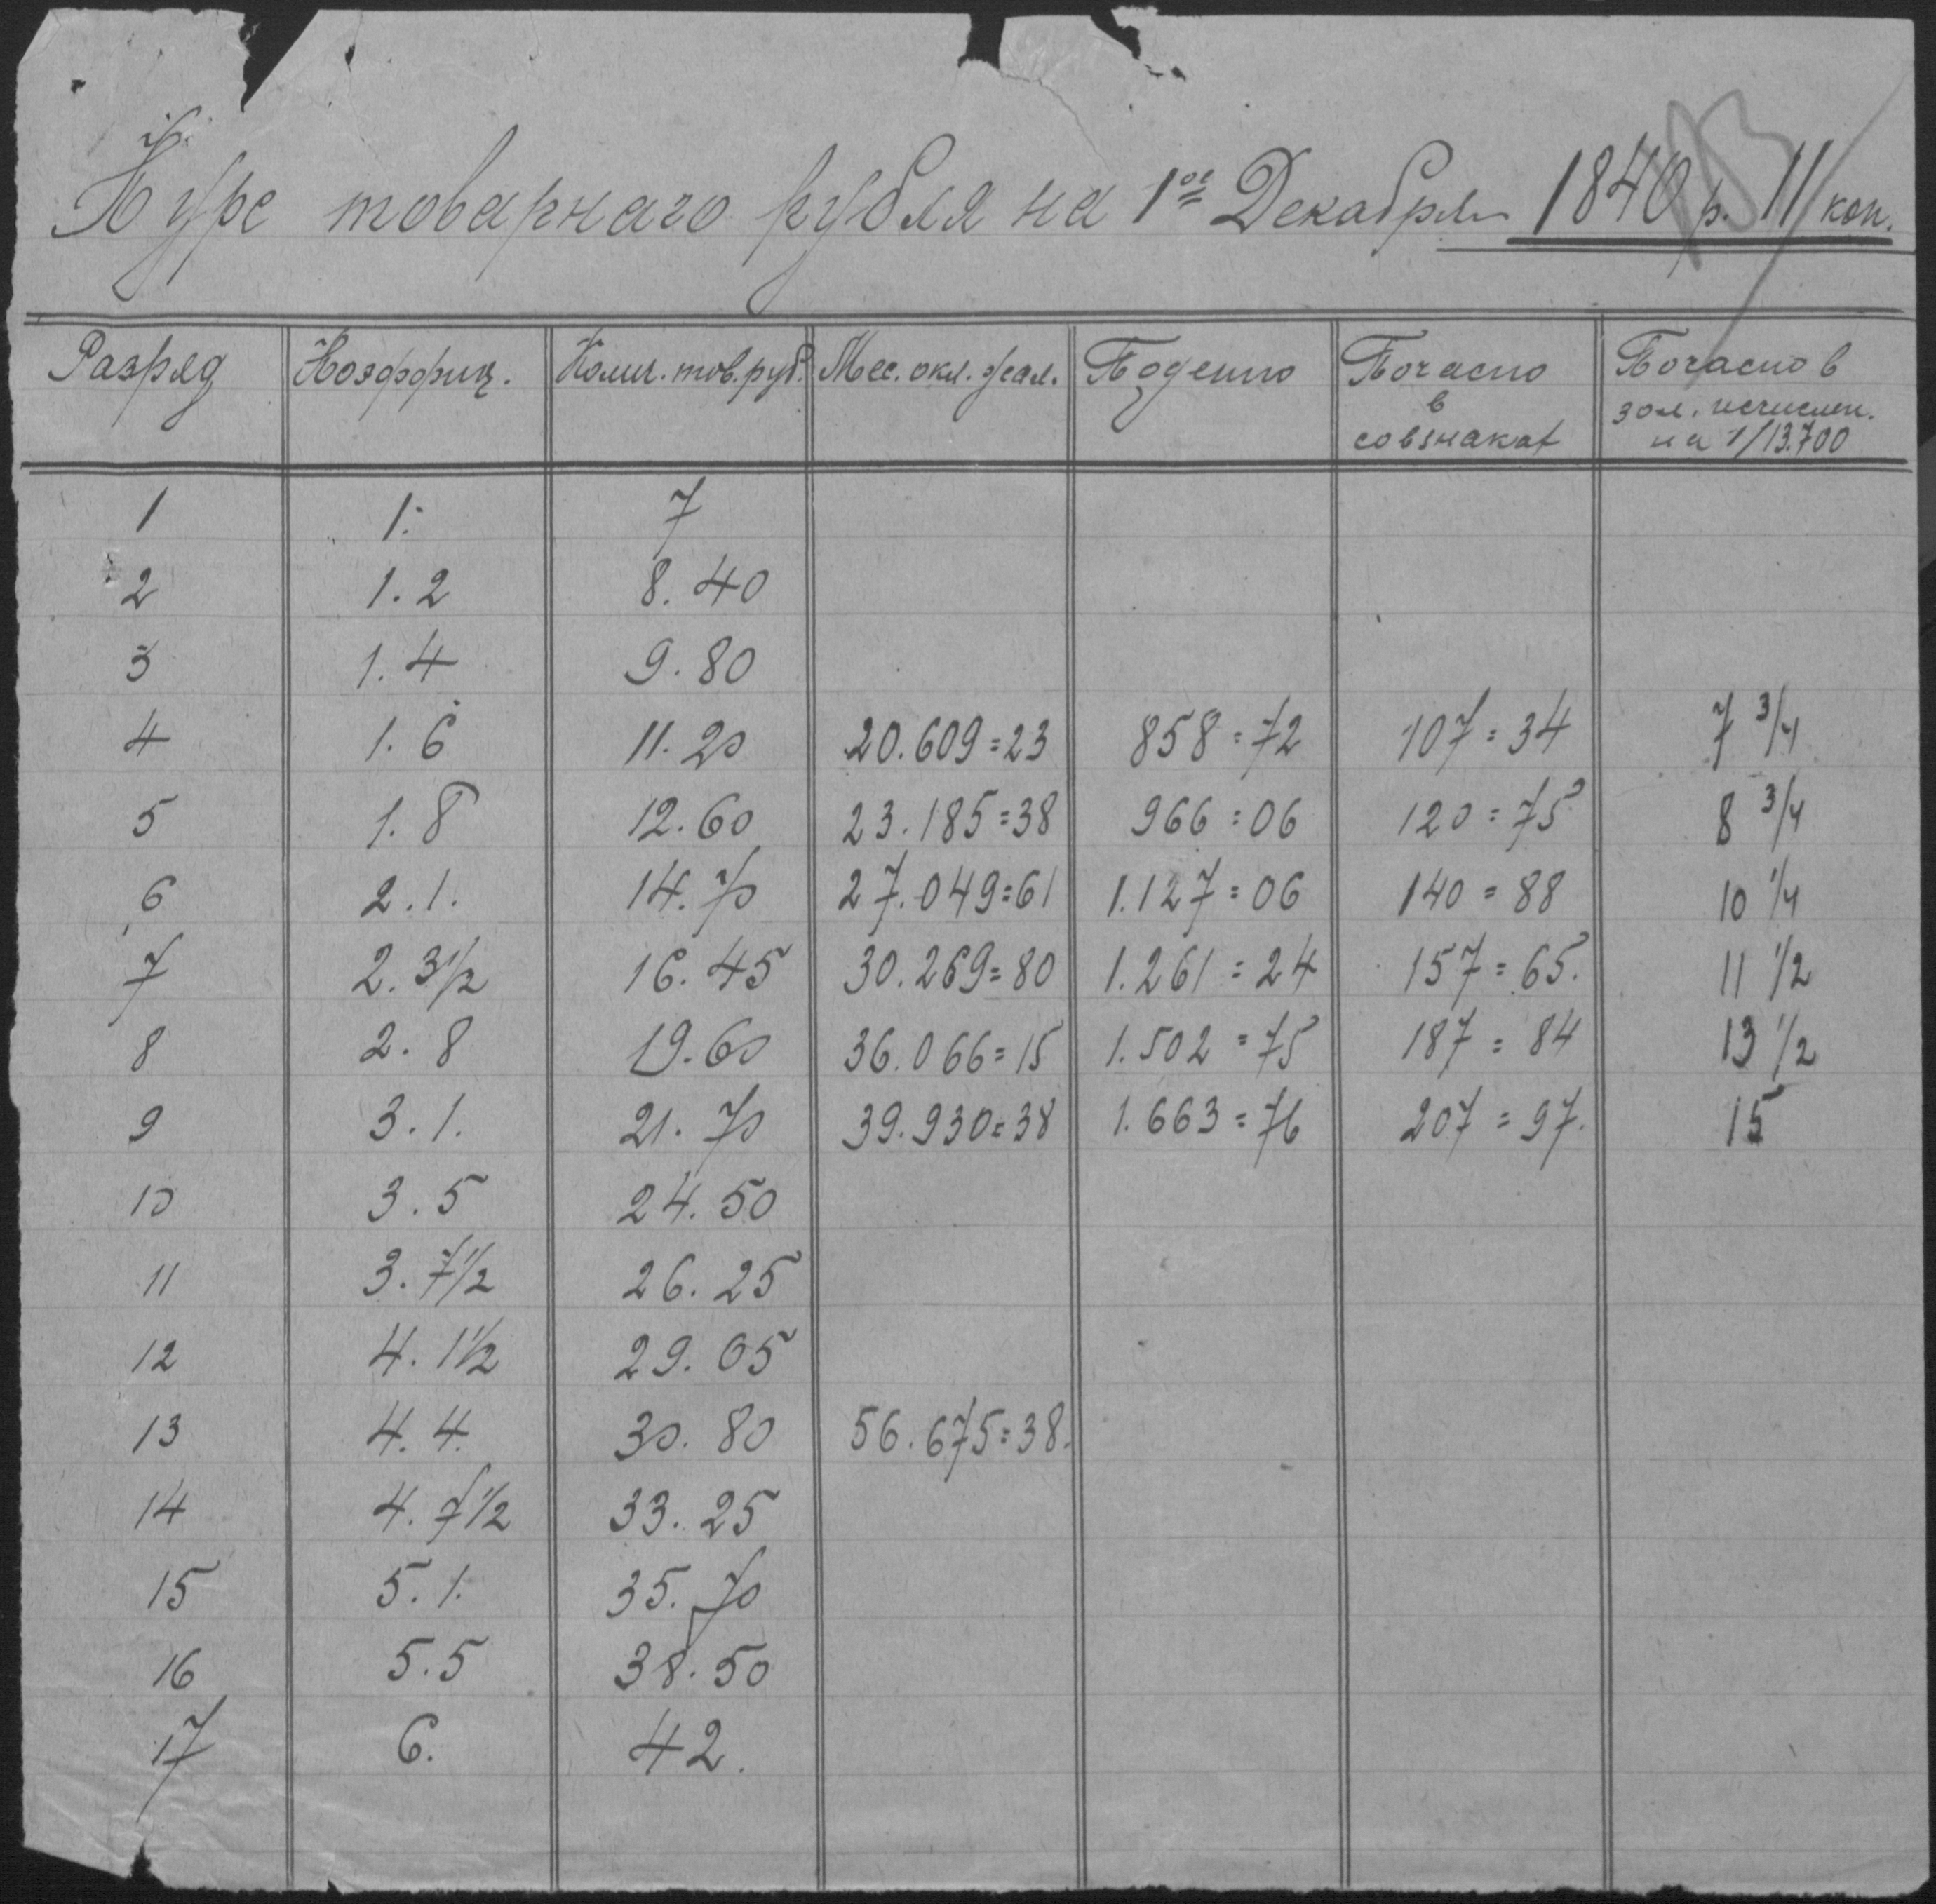 Курс товарнаго рубля на 1ое Декабря 1840 р. 11 коп.
Разряд Коэффиц. Колич. тов. руб. Мес. окл. жал. Поденно Почасно в совзнаках Почасно в зол. исчислен. на 1/13.700
1 1. 7
2 1.2 8.40
3 1.4 9.80
4 1.6 11.20 20.609=23 858=72 107=34 7 3/4
5 1.8 12.60 23.185=38 966=06 120=75 8 3/4
6 2.1. 14.70 27.049=61 1.127=06 140=88 10 1/4
7 2.3½ 16.45 30.269=80 1.261=24 157=65. 11 1/2
8 2.8 19.60 36.066=15 1.502=75 187=84 13 1/2
9 3.1. 21.70 39.930=38 1.663=76 207=97. 15
10 3.5 24.50
11 3.7½ 26.25
12 4.1½ 29.05
13 4.4. 30.80 56.675=38.
14 4.7½ 33.25
15 5.1. 35.70
16 5.5 38.50
17 6. 42.